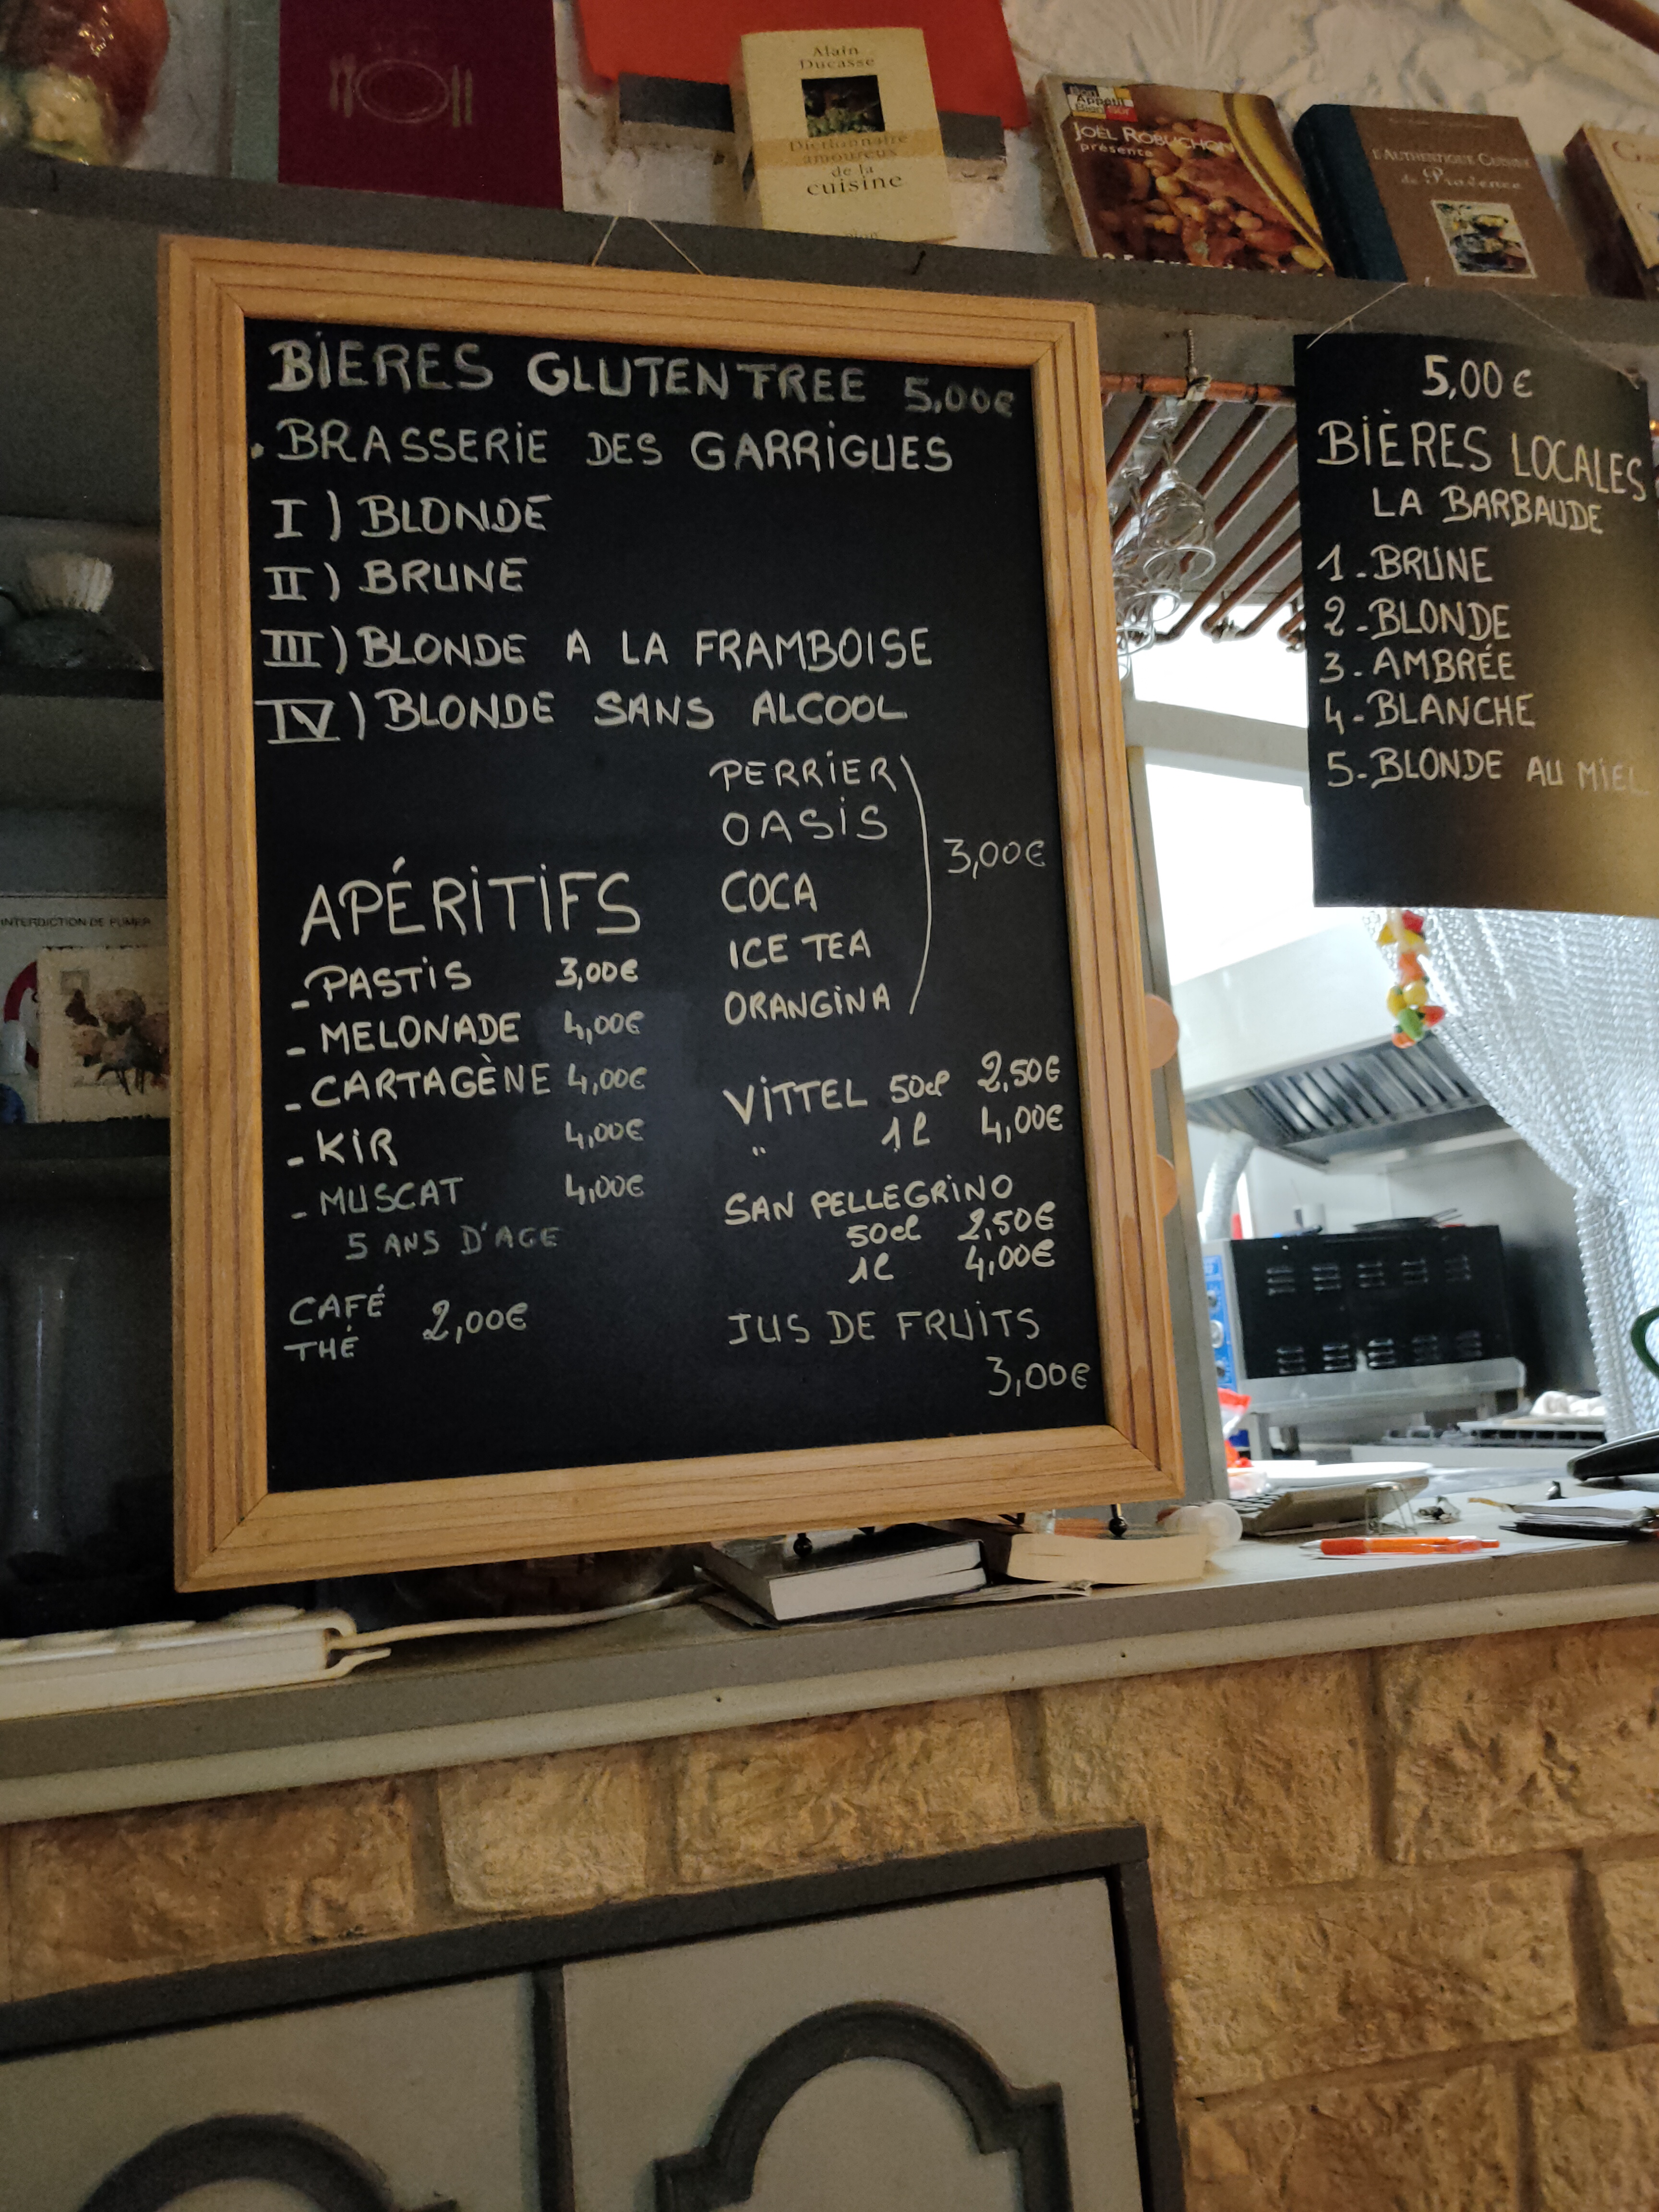 Alain
Ducasse
Dictionnaire
amoureux
de la
cuisine
Bon
Appétit
Bien sûr
JOËL ROBUCHON
présente
L'AUTHENTIQUE CUISINE
de Provence
BIERES GLUTEN FREE 5,00€
. BRASSERIE DES GARRIGUES
I ) BLONDE
II ) BRUNE
III ) BLONDE A LA FRAMBOISE
IV ) BLONDE SANS ALCOOL
APÉRITIFS
- PASTIS 3,00€
- MELONADE 4,00€
- CARTAGÈNE 4,00€
- KIR 4,00€
- MUSCAT 4,00€
5 ANS D'AGE
CAFÉ
THÉ 2,00€
PERRIER
OASIS
COCA
ICE TEA
ORANGINA
3,00€
VITTEL 50cl 2,50€
" 1l 4,00€
SAN PELLEGRINO
50cl 2,50€
1l 4,00€
JUS DE FRUITS
3,00€
5,00€
BIÈRES LOCALES
LA BARBAUDE
1-BRUNE
2-BLONDE
3-AMBRÉE
4-BLANCHE
5-BLONDE AU MIEL
INTERDICTION DE FUMER